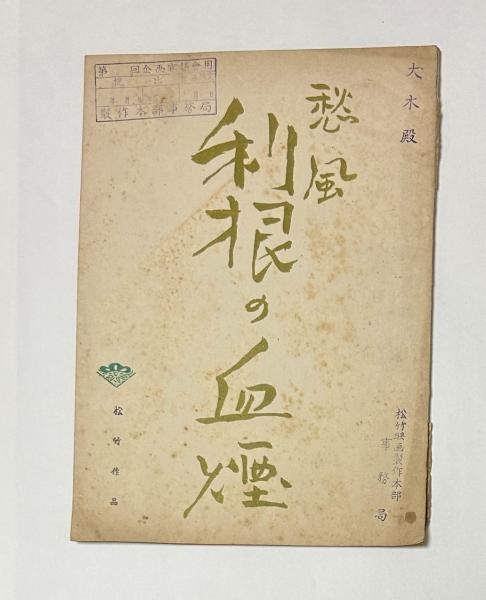 大木殿
愁風
利根の血煙
松竹映画製作本部
事務局
松竹作品
第 回企画審議会用
提出
年 月 日
製作本部事務局